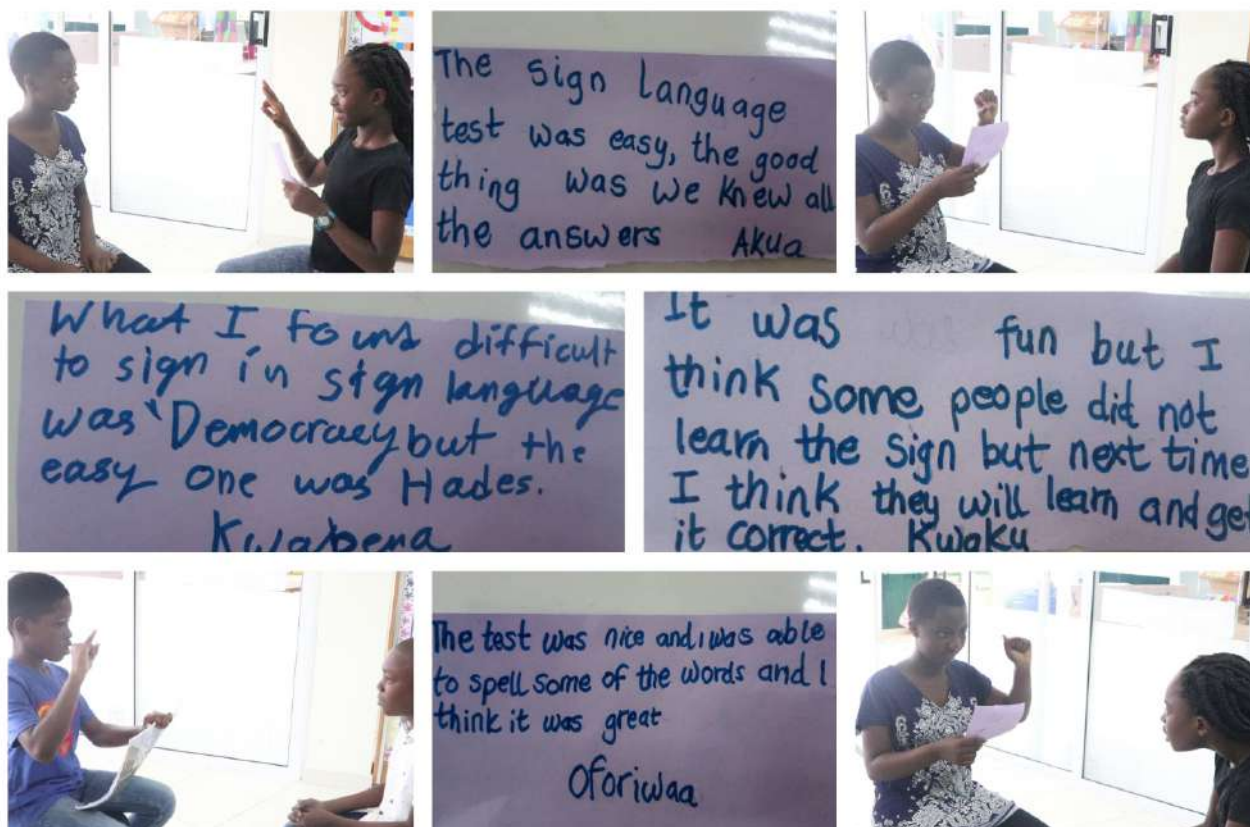 The sign language
test was easy, the good
thing was we knew all
the answers Akua
What I found difficult
to sign in sign language
was 'Democracy but the
easy one was Hades.
Kwabena
It was fun but I
think some people did not
learn the sign but next time
I think they will learn and get
it correct. Kwaku
The test was nice and i was able
to spell some of the words and I
think it was great
Oforiwaa